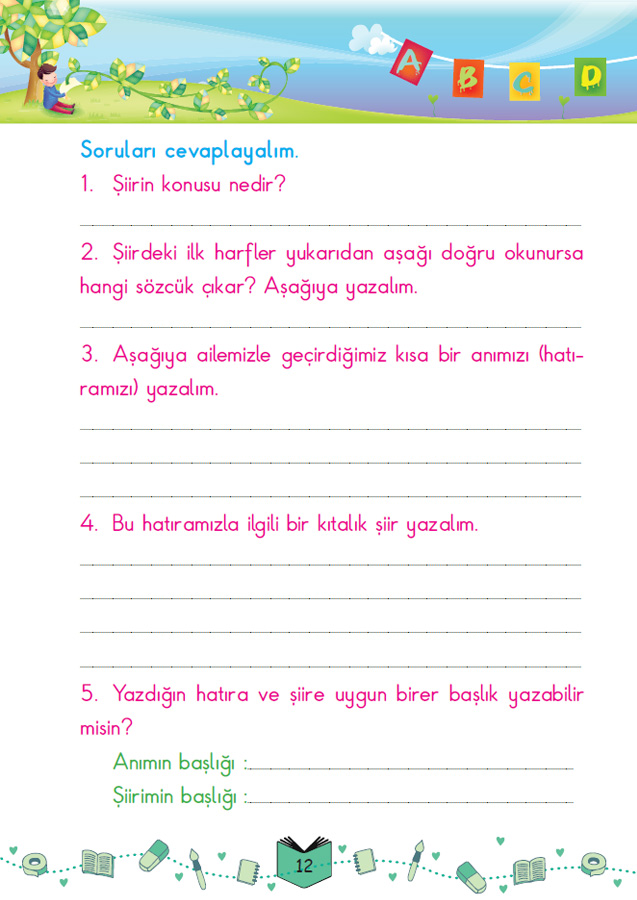 A B C D
Soruları cevaplayalım.
1. Şiirin konusu nedir?
2. Şiirdeki ilk harfler yukarıdan aşağı doğru okunursa
hangi sözcük çıkar? Aşağıya yazalım.
3. Aşağıya ailemizle geçirdiğimiz kısa bir anımızı (hatı-
ramızı) yazalım.
4. Bu hatıramızla ilgili bir kıtalık şiir yazalım.
5. Yazdığın hatıra ve şiire uygun birer başlık yazabilir
misin?
Anımın başlığı :
Şiirimin başlığı :
12